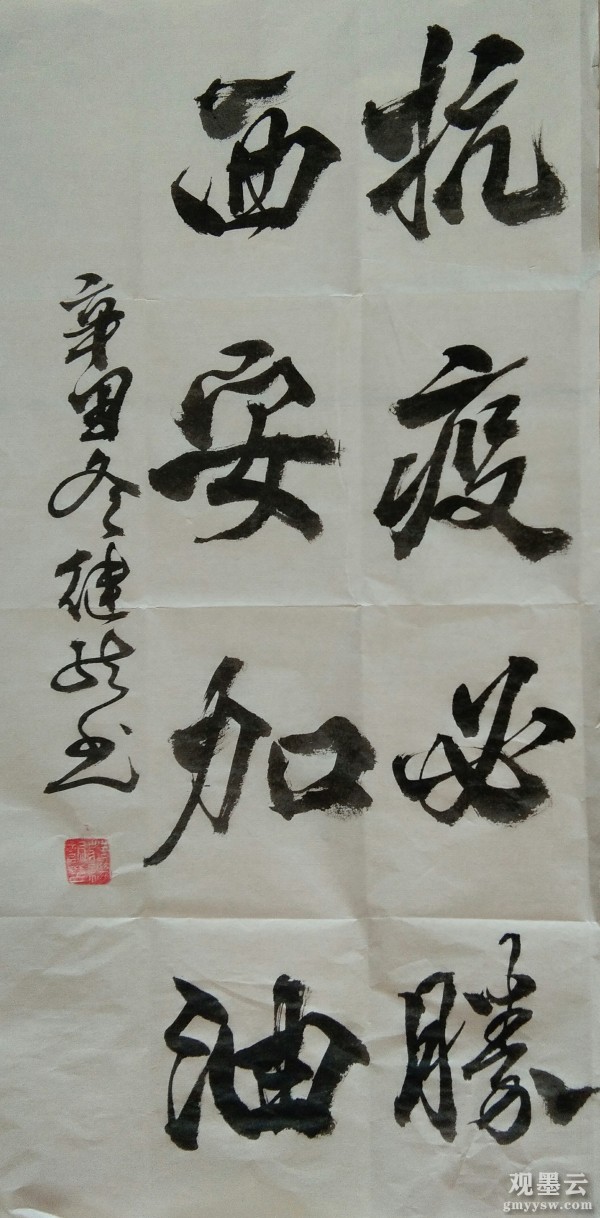 抗疫必勝
西安加油
辛丑冬健龙书
观墨云
gmyysw.com